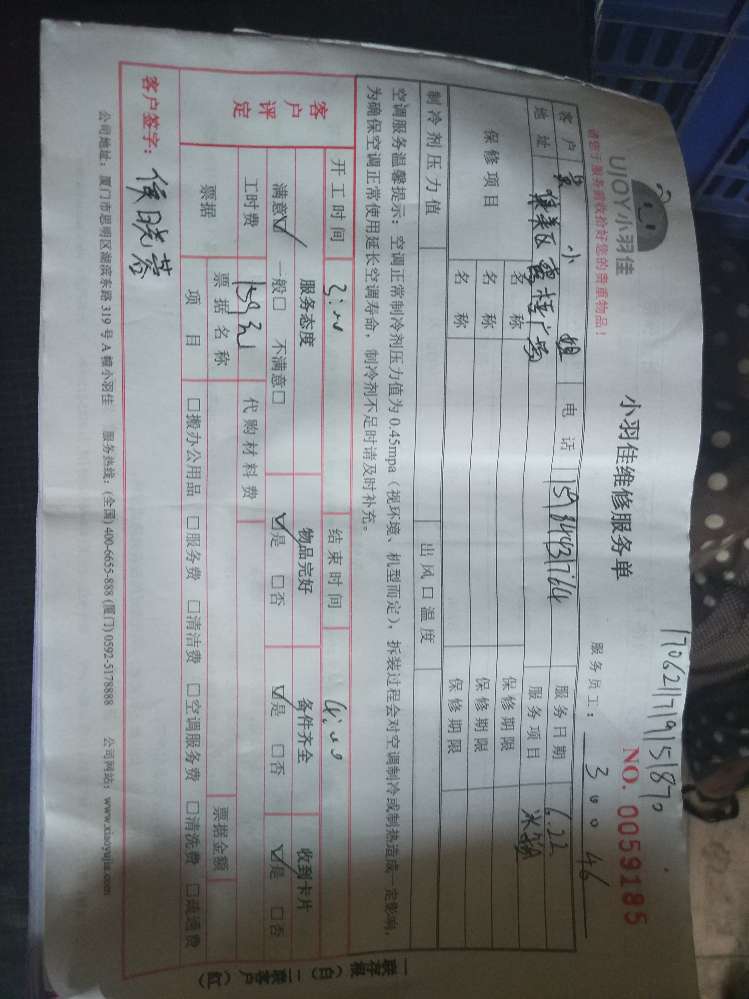 UJOY小羽佳
请您于服务前收拾好您的贵重物品！
小羽佳维修服务单
1706211719151870
NO. 0059185
服务员工： 30046
客户 小姐 电话 服务日期 6.22
地址 服务项目
保修项目 名称 保修期限
名称 保修期限
名称 保修期限
制冷剂压力值 出风口温度
空调服务温馨提示：空调正常制冷剂压力值为0.45mpa（视环境、机型而定），拆装过程会对空调制冷或制热造成一定影响，
为确保空调正常使用延长空调寿命，制冷剂不足时请及时补充。
开工时间 3:00 结束时间 4:00
客户评定 服务态度 物品完好 备件齐全 收到卡片
满意☑ 一般□ 不满意□ ☑是 □否 ☑是 □否 ☑是 □否
工时费 代购材料费
票据 票据名称 票据金额
项目 □搬办公用品 □服务费 □清洁费 □空调服务费 □清洗费 □疏通费
客户签字：侯晓蓉
公司地址：厦门市思明区湖滨东路319号A幢小羽佳 服务热线：(全国) 400-6655-888 (厦门) 0592-5178888 公司网站：www.xiaoyujia.com
一联存根（白）二联客户（红）